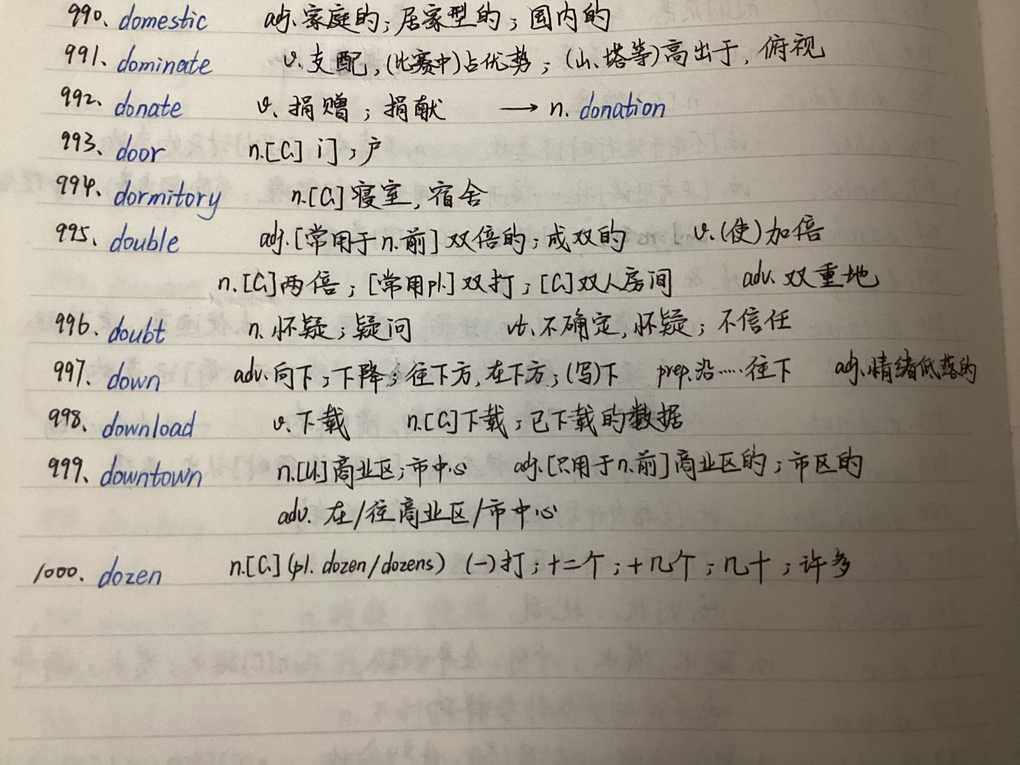 990. domestic adj.家庭的;居家型的;国内的
991. dominate v.支配,(比赛中)占优势;(山、塔等)高出于,俯视
992. donate v.捐赠;捐献 → n. donation
993. door n.[C.] 门,户
994. dormitory n.[C.]寝室,宿舍
995. double adj.[常用于n.前]双倍的;成双的 v.(使)加倍
n.[C.]两倍;[常用pl.]双打;[C.]双人房间 adv.双重地
996. doubt n.怀疑;疑问 vt.不确定,怀疑;不信任
997. down adv.向下;下降;往下方,在下方;(写)下 prep.沿……往下 adj.情绪低落的
998. download v.下载 n.[C.]下载;已下载的数据
999. downtown n.[U.]商业区;市中心 adj.[只用于n.前]商业区的;市区的
adv. 在/往商业区/市中心
1000. dozen n.[C.](pl. dozen/dozens) (一)打;十二个;十几个;几十;许多